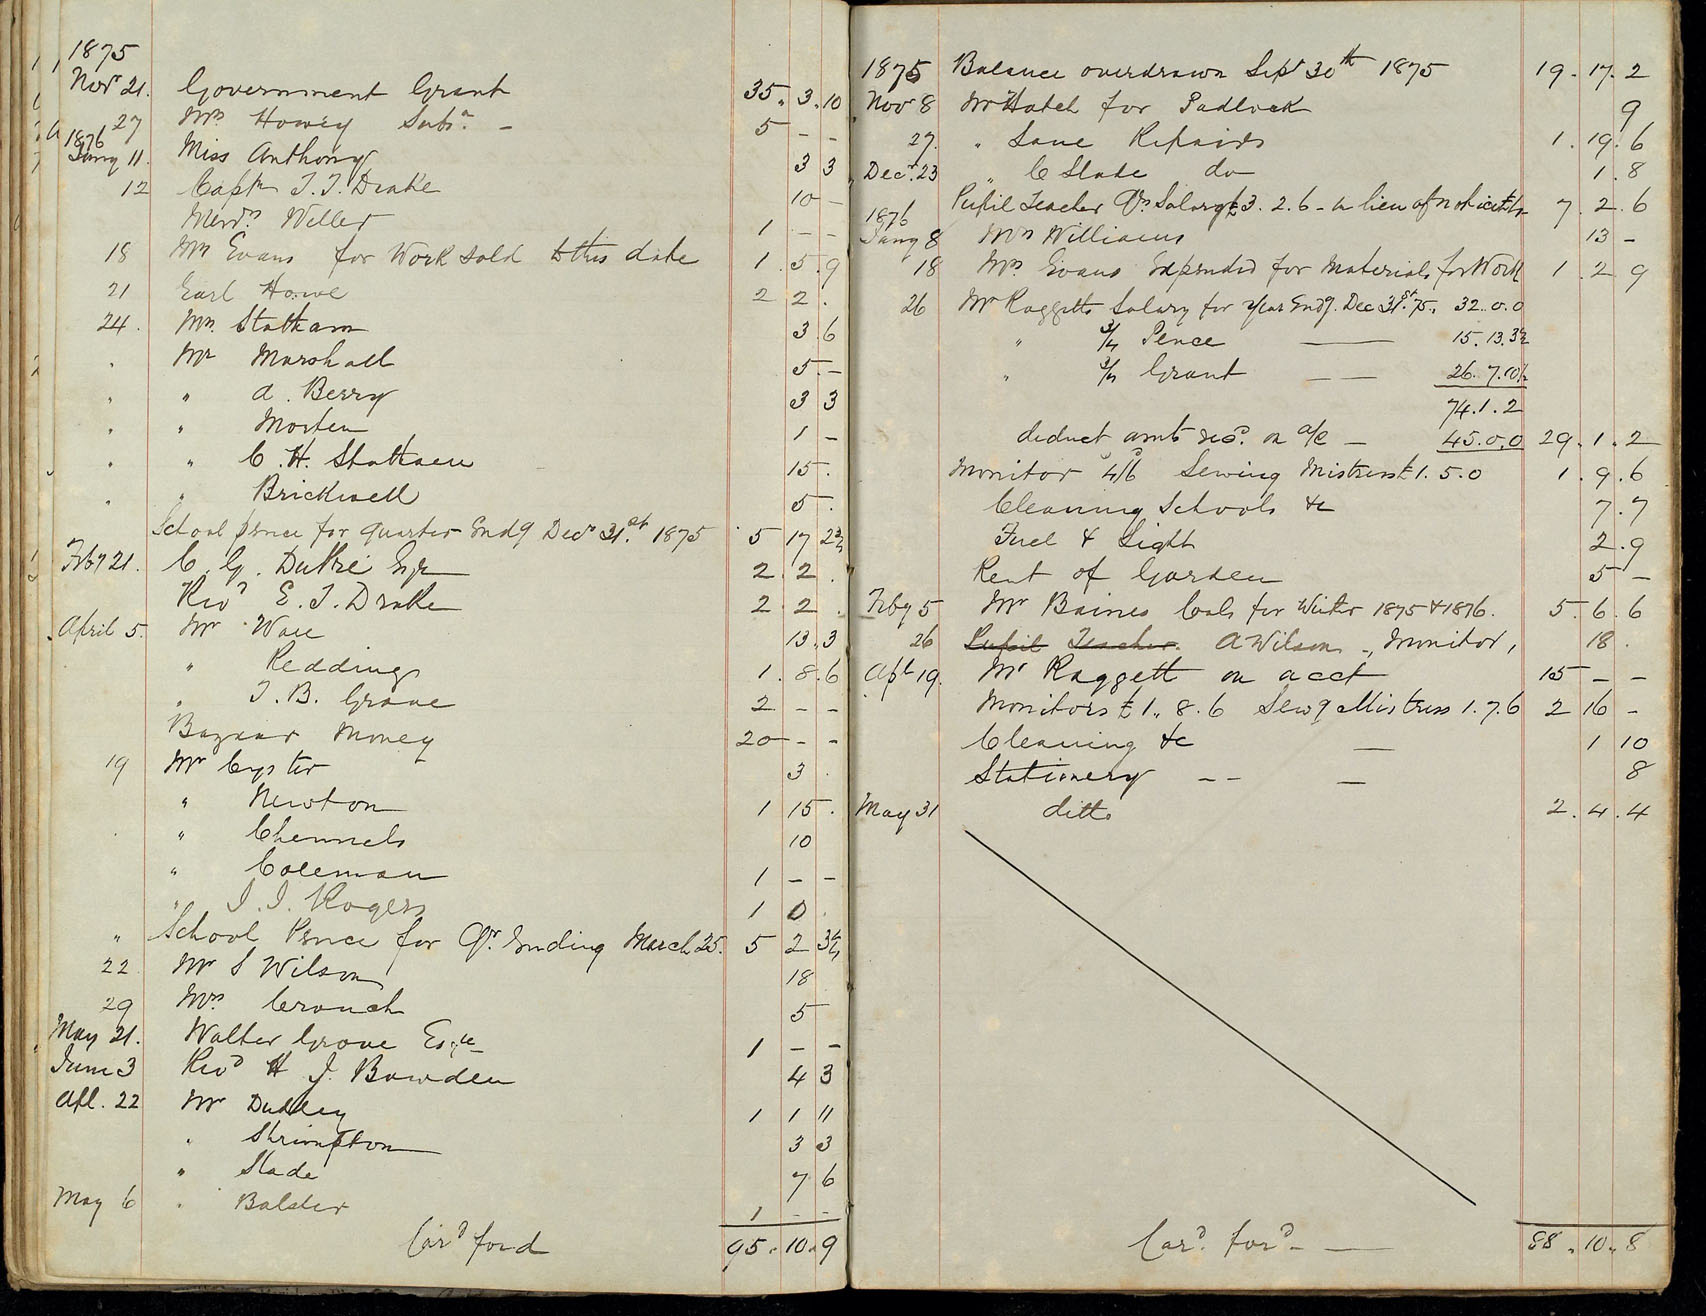 1875
Novr 21. Government Grant 35. 3. 10
27 Mrs Howey Subn. - 5 - -
1876
Jany 11. Miss Anthony 3 3
12 Captn T. T. Drake 10 -
Weller 1 - -
18 Mrs Evans for Work sold to this date 1. 5. 9
21 Earl Howe 2 2.
24. Mrs. Statham 3. 6
. Mr Marshall 5. -
. " A. Berry 3 3
. " Morten 1 -
. " C. H. Statham 15.
. " Brickwell 5.
School pence for quarter Endg Decr 31st. 1875 5 17 2¾
Feby 21. C. G. DuPré Esqr 2. 2.
Revd E. T. Drake 2. 2.
April 5. Mr Ware 13. 3
" Redding 1. 8. 6
" T. B. Grove 2 - -
Bazaar Money 20 - -
19 Mr Cyster 3.
" Newton 1 15.
" Chennels 10
" Coleman 1 - -
" J. J. Rogers 1 0
" School Pence for Qr. Ending March 25. 5 2 3½
22 Mr S Wilson 18
29 Mrs Crouch 5
May 21. Walter Grove Esqre 1 - -
June 3 Revd H J. Bowden 4 3
Apl. 22 Mr Dudley 1 1 11
" Shrimpton 3 3
" Slade 7 6
May 6 . Balster 1 - -
Card ford 95. 10. 9
1875 Balance overdrawn Sept 30th 1875 19. 17. 2
Novr 8 Mr Hatch for Padlock 9
27. " Lane Repairs 1. 19. 6
Decr. 23 " C Slade do 1. 8
Pupil Teacher Qrs Salary £3. 2. 6 - in lieu of 7. 2. 6
1876
Jany 8 Mrs Williams 13 -
18 Mrs Evans Expended for Materials for Work 1. 2. 9
26 Mr Raggetts Salary for Year Endg. Dec 31st. 75. 32. 0. 0
" ¾ Pence — 15. 13. 3½
" ¾ Grant — — 26. 7. 10½
74. 1. 2
deduct amts recd. on a/c — 45. 0. 0 29. 1. 2
Monitor 4/6 Sewing Mistress £1. 5. 0 1. 9. 6
Cleaning Schools &c 7. 7
Fuel & Light 2. 9
Rent of Garden 5 -
Feby 5 Mr Baines Coals for Winter 1875 & 1876. 5. 6. 6
26 Pupil Teacher. A Wilson -, Monitor, 18.
Apl 19. Mr Raggett on acct 15 - -
Monitors £1. 8. 6 Sewg Mistress 1. 7. 6 2 16 -
Cleaning &c — 1 10
Stationery - - — 8
May 31 ditto 2. 4. 4
Card. ford - — 88. 10. 8